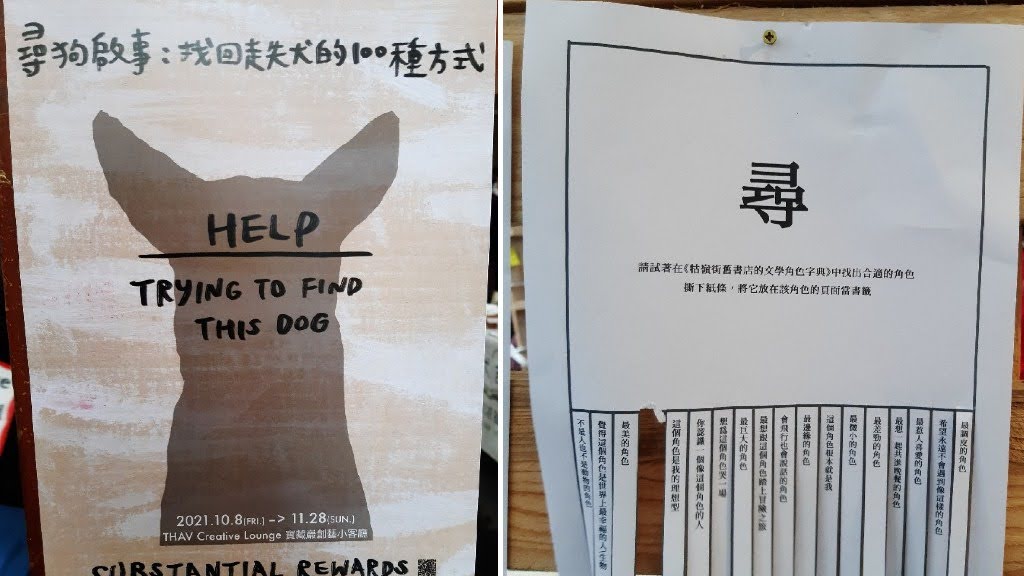 尋狗啟事：找回走失犬的100種方式
HELP
TRYING TO FIND
THIS DOG
2021.10.8(FRI.) –> 11.28(SUN.)
THAV Creative Lounge 寶藏巖創藝小客廳
SUBSTANTIAL REWARDS
尋
請試著在《牯嶺街舊書店的文學角色字典》中找出合適的角色
撕下紙條，將它放在該角色的頁面當書籤
不是人也不是動物的角色
覺得這個角色是世界上最幸福的人/生物
最美的角色
這個角色是我的理想型
你認識一個像這個角色的人
想為這個角色哭一場
最巨大的角色
最想跟這個角色踏上冒險之旅
會飛行也會說話的角色
最邊緣的角色
這個角色根本就是我
最微小的角色
最差勁的角色
最想一起共進晚餐的角色
最惹人喜愛的角色
希望永遠不會遇到像這樣的角色